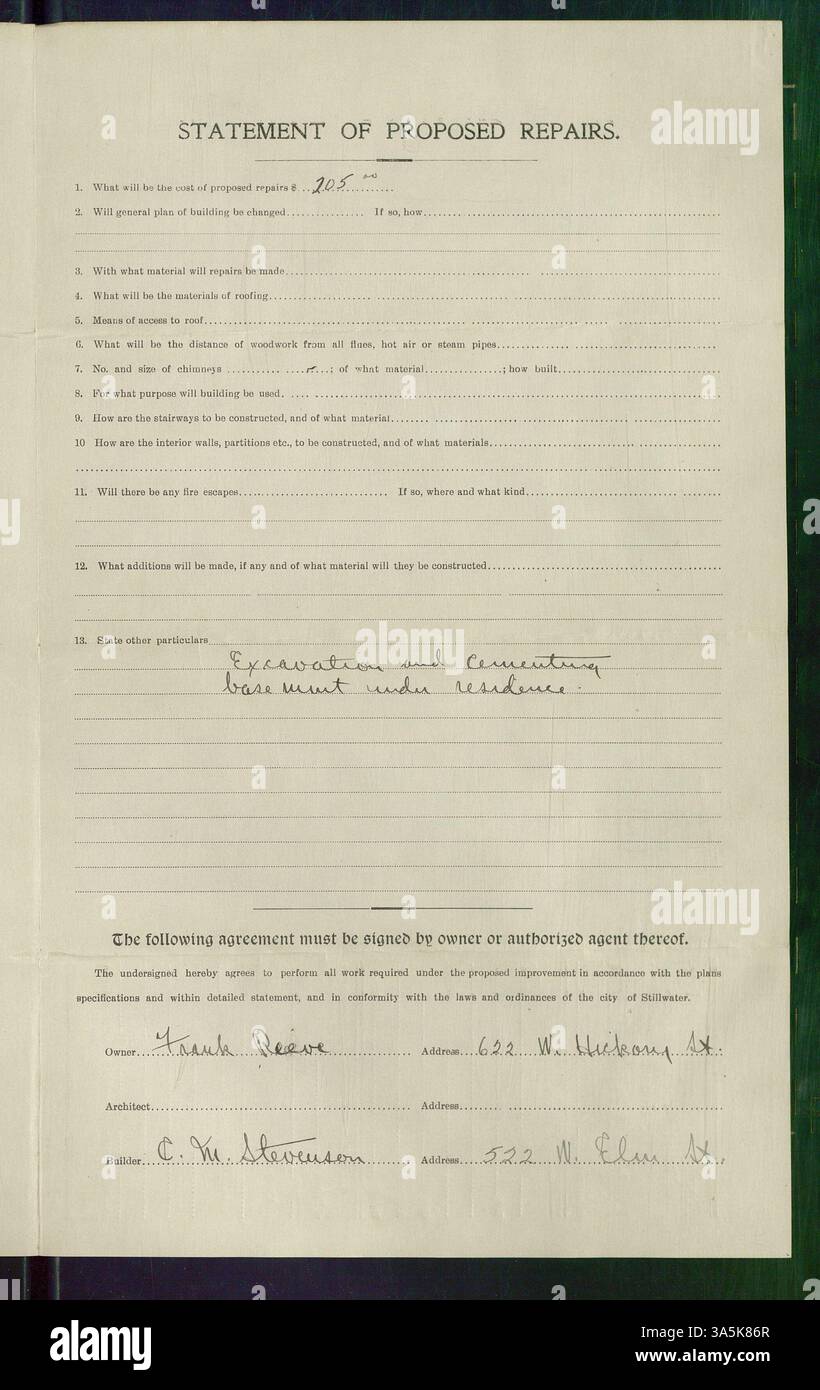 STATEMENT OF PROPOSED REPAIRS.
1. What will be the cost of proposed repairs $...205.00..........
2. Will general plan of building be changed............... If so, how......................
3. With what material will repairs be made......................
4. What will be the materials of roofing......................
5. Means of access to roof......................
6. What will be the distance of woodwork from all flues, hot air or steam pipes......................
7. No. and size of chimneys ...............; of what material...............; how built......................
8. For what purpose will building be used......................
9. How are the stairways to be constructed, and of what material......................
10 How are the interior walls, partitions etc., to be constructed, and of what materials......................
11. Will there be any fire escapes...................... If so, where and what kind......................
12. What additions will be made, if any and of what material will they be constructed......................
13. State other particulars
Excavation and cementing
basement under residence.
The following agreement must be signed by owner or authorized agent thereof.
The undersigned hereby agrees to perform all work required under the proposed improvement in accordance with the plans
specifications and within detailed statement, and in conformity with the laws and ordinances of the city of Stillwater.
Owner....Frank Reeve............... Address...622 W. Hickory St.
Architect...................... Address......................
Builder...C. M. Stevenson.......... Address....522 W. Elm St.
alamy
Image ID: 3A5K86R
www.alamy.com